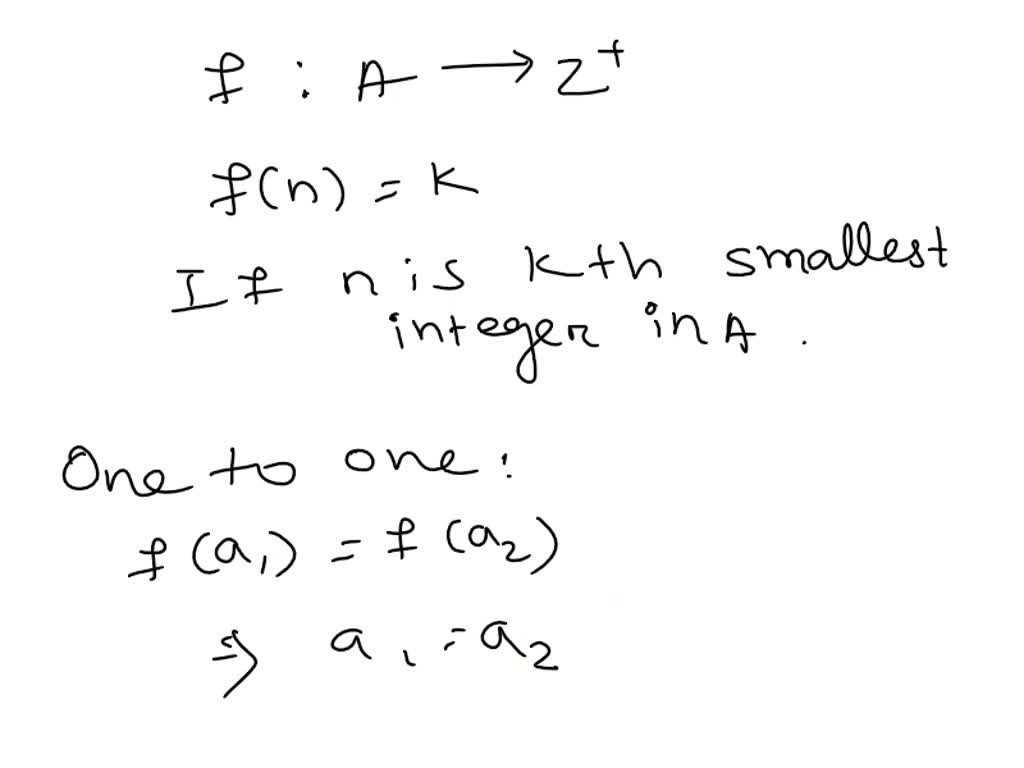 f : A → Z⁺
f(n) = K
If n is kth smallest
integer in A .
One to one :
f(a₁) = f(a₂)
⇒ a₁ = a₂